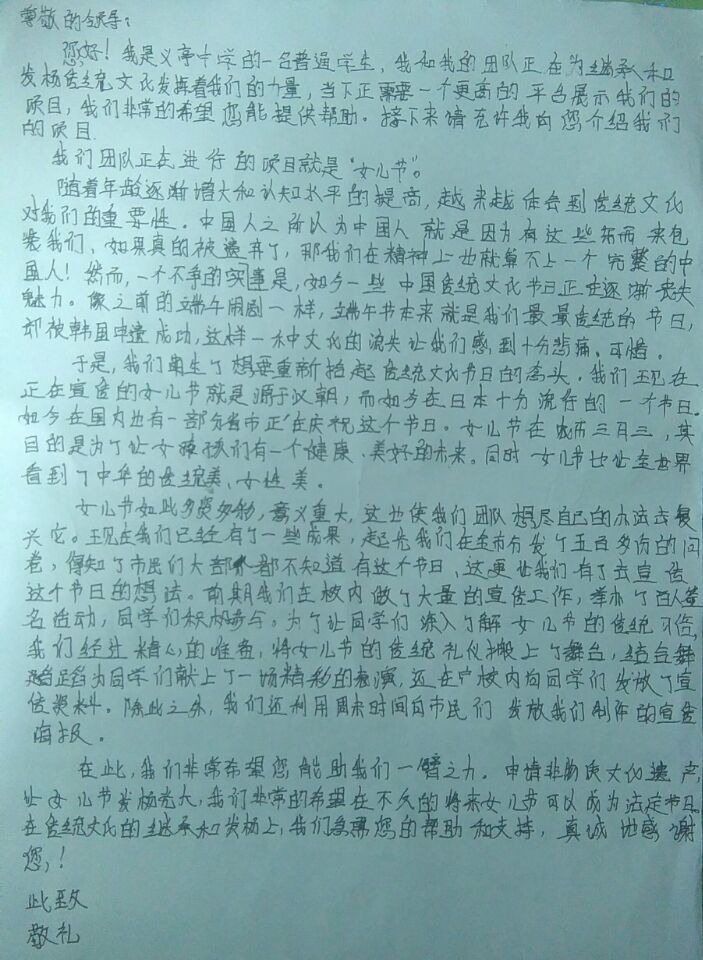 尊敬的领导：
您好！我是义亭中学的一名普通学生，我和我的团队正在为继承和
发扬传统文化发挥着我们的力量，当下正需要一个更高的平台展示我们的
项目，我们非常的希望您能提供帮助。接下来请允许我向您介绍我们
的项目
我们团队正在进行的项目就是“女儿节”。
随着年龄逐渐增大和认知水平的提高，越来越体会到传统文化
对我们的重要性。中国人之所以为中国人就是因为有这些东西来包
装我们、如果真的被遗弃了，那我们在精神上也就算不上一个完整的中
国人！然而，一个不争的实事是，如今一些中国传统文化节日正在逐渐丧失
魅力。像之前的端午闹剧一样，端午节本来就是我们最最传统的节日，
却被韩国申遗成功，这样一种文化的流失让我们感到十分悲痛、可惜。
于是，我们萌生了想要重新拾起传统文化节日的念头。我们现在
正在宣传的女儿节就是源于汉朝，而如今在日本十分流行的一个节日。
如今在国内也有一部分省市正在庆祝这个节日。女儿节在农历三月三，其
目的是为了让女孩子们有一个健康、美好的未来。同时女儿节也让全世界
看到了中华的传统美、女性美。
女儿节如此多姿多彩，意义重大，这也使我们团队想尽自己的办法去复
兴它。现在我们已经有了一些成果，起先我们在全市分发了五百多份的问
卷，得知了市民们大部分都不知道有这个节日、这更让我们有了去宣传
这个节日的想法。前期我们在校内做了大量的宣传工作，举办了百人签
名活动，同学们积极参与。为了让同学们深入了解女儿节的传统习俗，
我们经过精心的准备，将女儿节的传统礼仪搬上了舞台，结合舞
蹈为同学们献上了一场精彩的表演，还在校内向同学们发放了宣
传资料。除此之外，我们还利用周末时间向市民们发放我们制作的宣传
海报。
在此，我们非常希望您能助我们一臂之力。申请非物质文化遗产，
让女儿节发扬光大，我们非常的希望在不久的将来女儿节可以成为法定节日。
在传统文化的继承和发扬上，我们急需您的帮助和支持，真诚地感谢
您，！
此致
敬礼